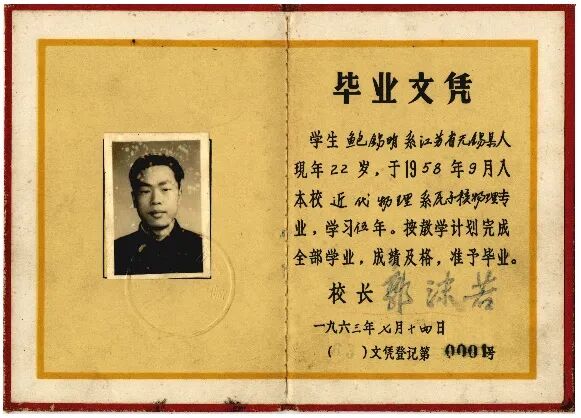 毕业文凭
学生 鲍锡明 系江苏省无锡县人
现年22岁，于1958年9月入
本校近代物理系原子核物理专
业，学习伍年。按教学计划完成
全部学业，成绩及格，准予毕业。
校长 郭沫若
一九六三年七月十四日
(63)文凭登记第 0001号